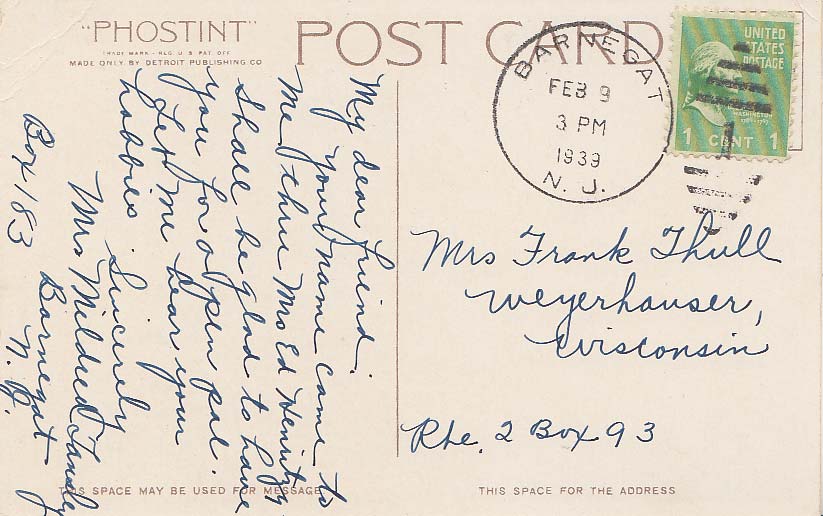 "PHOSTINT"
TRADE MARK - REG. U. S. PAT. OFF.
MADE ONLY BY DETROIT PUBLISHING CO
POST CARD
BARNEGAT
FEB 9
3 PM
1939
N. J.
UNITED
STATES
POSTAGE
WASHINGTON
1 CENT 1
My dear friend:
Your name came to
me thru Mrs Ed
Shall be glad to have
you for a pen pal.
Let me hear your
hobbies. Sincerely
Mrs Mildred
Box 183 Barnegat
N. J.
Mrs Frank Thull
Weyerhauser,
Wisconsin
Rte. 2 Box 93
THIS SPACE MAY BE USED FOR MESSAGE
THIS SPACE FOR THE ADDRESS